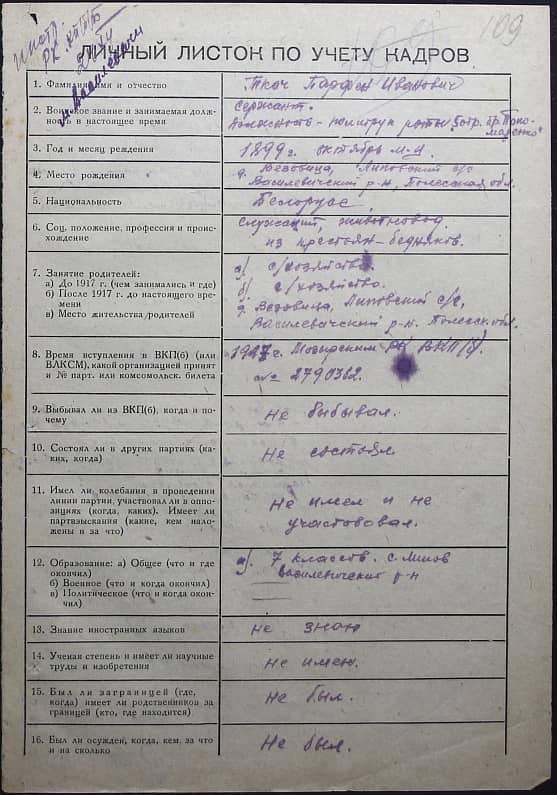 109
ЛИЧНЫЙ ЛИСТОК ПО УЧЕТУ КАДРОВ
1. Фамилия, имя и отчество
Ткач Парфен Иванович
2. Воинское звание и занимаемая долж-
ность в настоящее время
Сержант.
Должность - политрук роты
3. Год и месяц рождения
1899 г. октябрь м-ц
4. Место рождения
Липовский с/с
Василевичский р-н, Полесская обл.
5. Национальность
Белорус
6. Соц. положение, профессия и проис-
хождение
Служащий, животновод
из крестьян-бедняков.
7. Занятие родителей:
а) До 1917 г. (чем занимались и где)
б) После 1917 г. до настоящего вре-
мени
в) Место жительства родителей
а) с/хозяйство.
б) с/хозяйство.
Липовский с/с,
Василевичский р-н. Полесск. обл.
8. Время вступления в ВКП(б) (или
ВЛКСМ), какой организацией принят
и № парт. или комсомольск. билета
1927 г. Мозырским РК ВКП(б).
№ 2790362.
9. Выбывал ли из ВКП(б), когда и по-
чему
Не выбывал.
10. Состоял ли в других партиях (ка-
ких, когда)
Не состоял
11. Имел ли колебания в проведении
линии партии, участвовал ли в оппо-
зициях (когда, каких). Имеет ли
партвзыскания (какие, кем нало-
жены и за что)
Не имел и не
участвовал.
12. Образование: а) Общее (что и где
окончил)
б) Военное (что и когда окончил)
в) Политическое (что и когда окон-
чил)
а). 7 классов. с Липов
Василевичский р-н
13. Знание иностранных языков
Не знаю
14. Ученая степень и имеет ли научные
труды и изобретения
Не имею.
15. Был ли заграницей (где,
когда) имеет ли родственников за
границей (кто, где находится)
Не был.
16. Был ли осужден, когда, кем, за что
и на сколько
Не был.